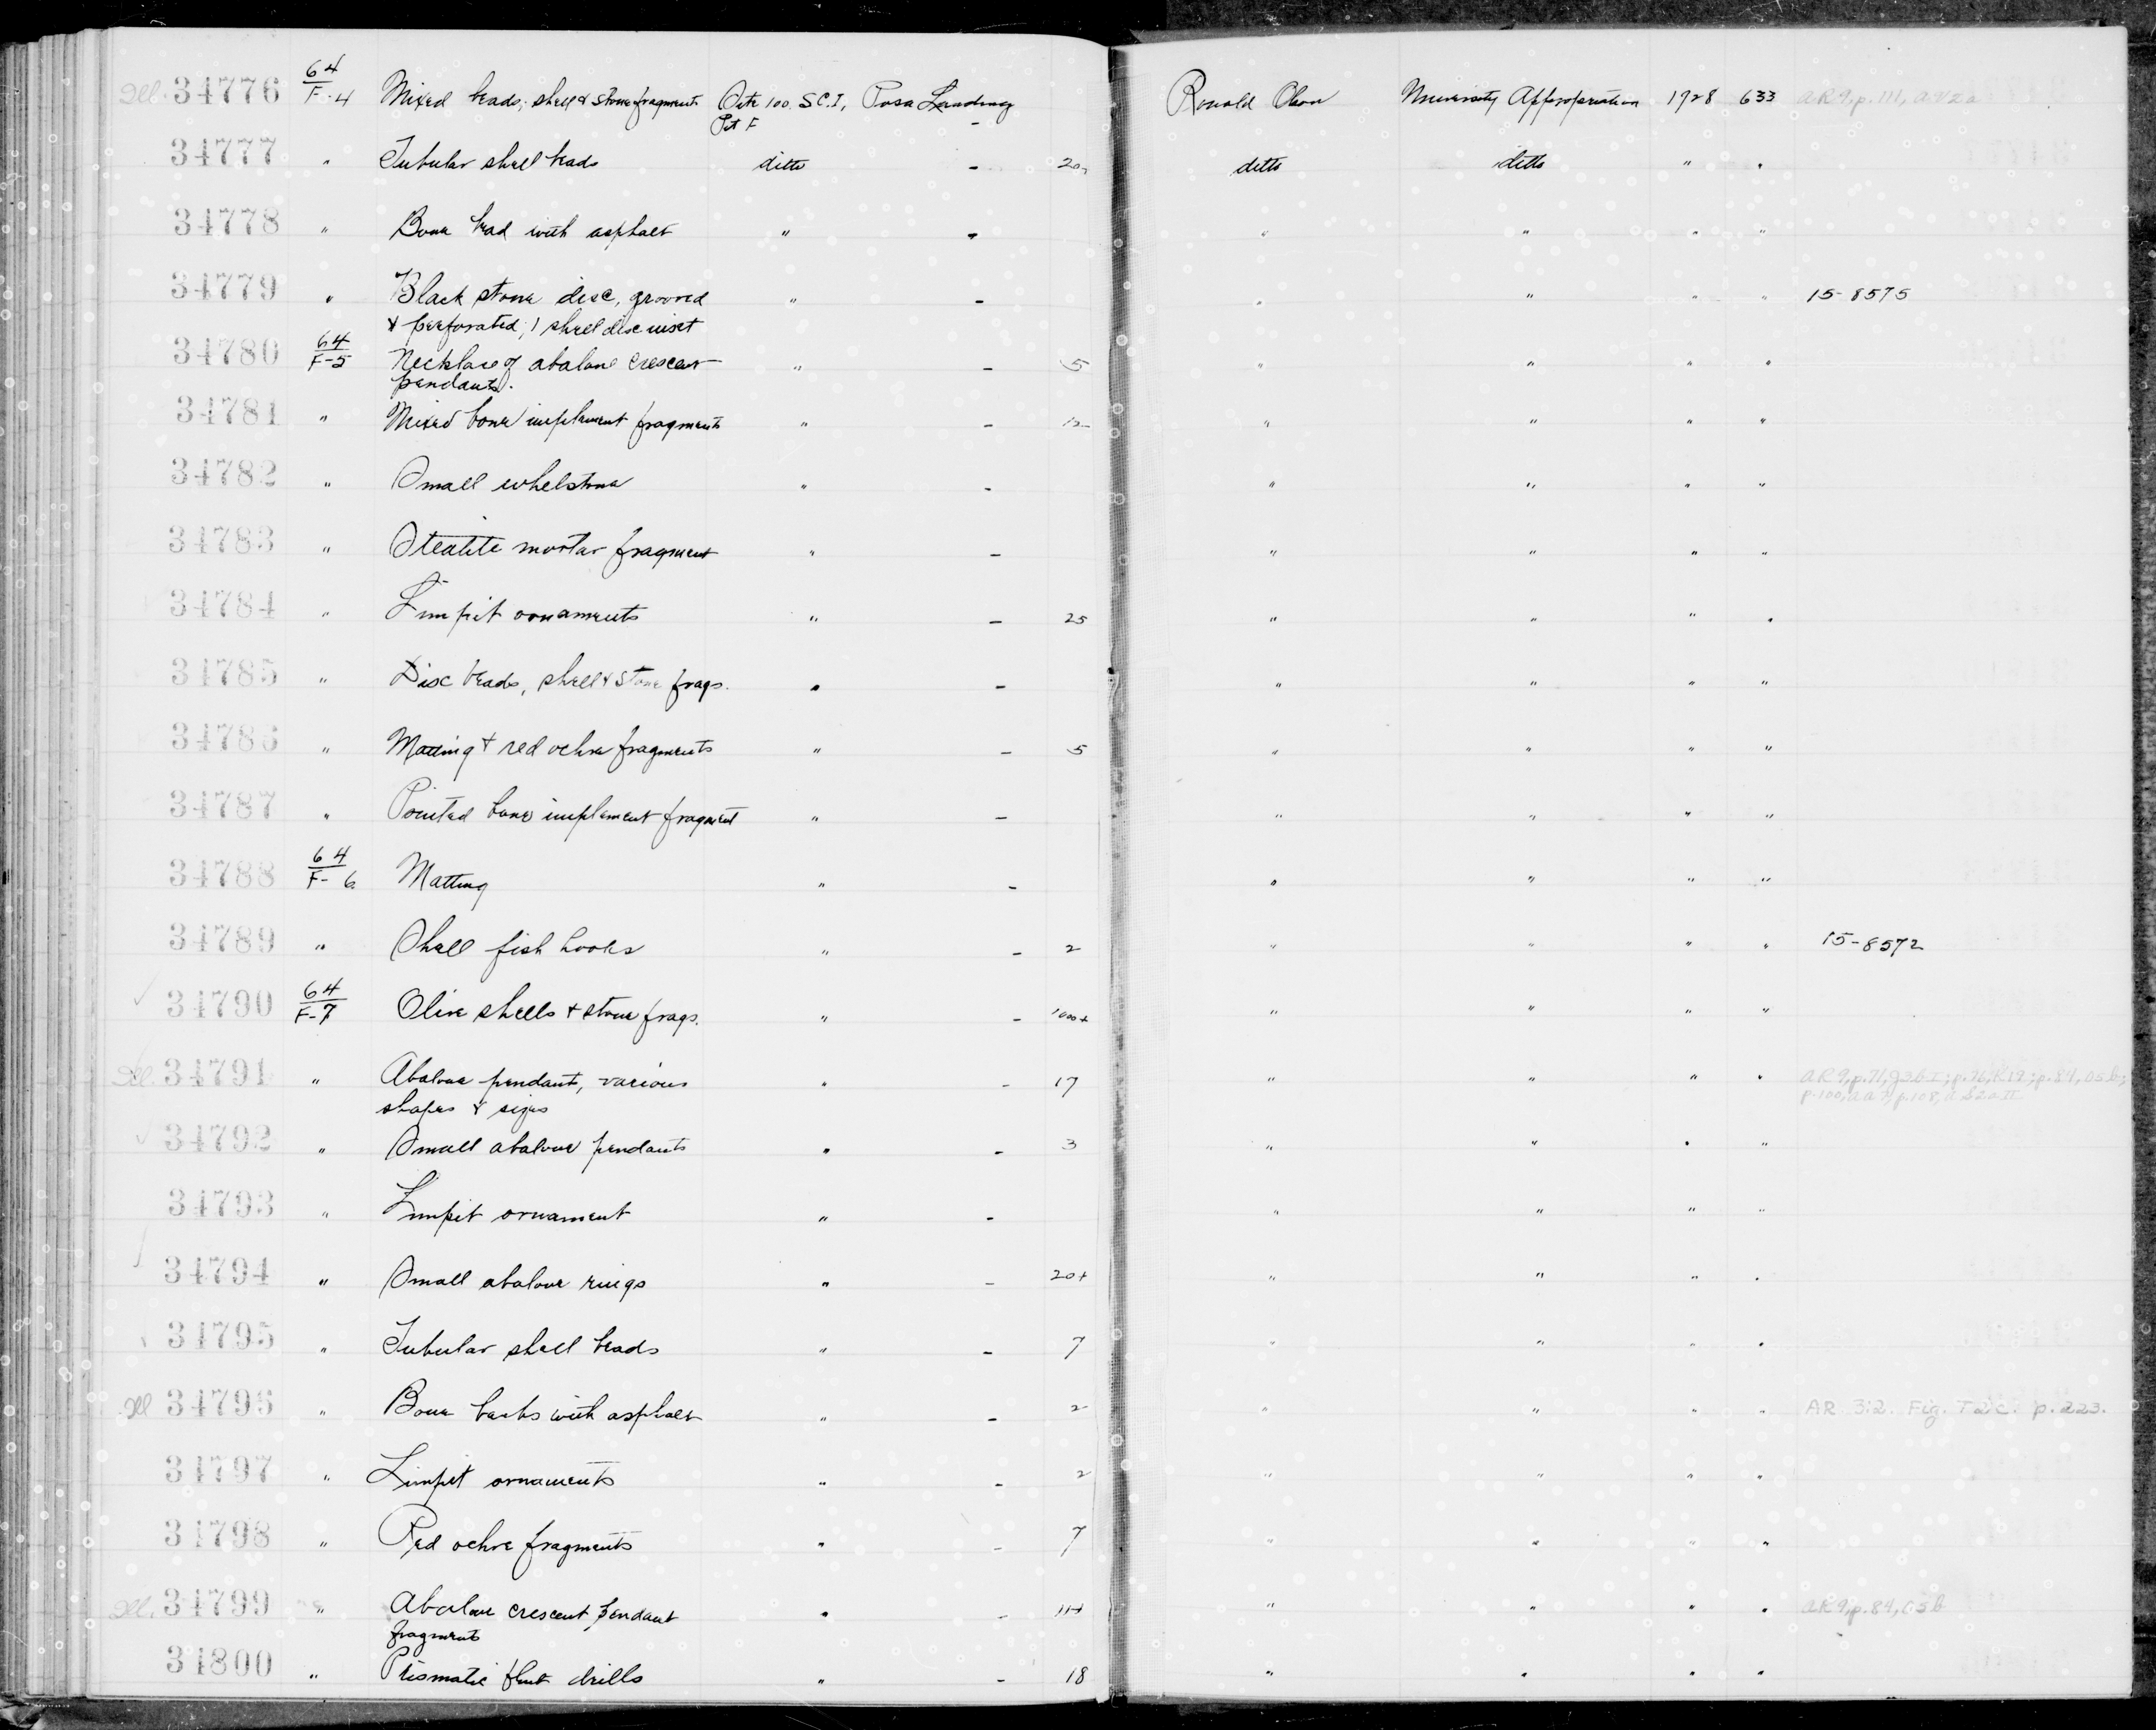 Ill. 34776 64/F-4 Mixed beads, shell & stone fragments Site 100. S.C.I, Posa Landing - Ronald Olson University Appropriation 1928 633 AR9, p. 111, AV2a
Pit F
34777 " Tubular shell beads ditto - 20 ditto ditto " "
34778 " Bone bead with asphalt " - " " " "
34779 " Black stone disc, grooved " - " " " " 15-8575
& perforated; 1 shell disc inset
34780 64/F-5 Necklace of abalone crescent " - 5 " " " "
pendants.
34781 " Mixed bone implement fragments " - 12 " " " "
34782 " Small whetstone " - " " " "
34783 " Steatite mortar fragment " - " " " "
34784 " Limpit ornaments " - 25 " " " "
34785 " Disc beads, shell & stone frags. " - " " " "
34786 " Matting & red ochre fragments " - 5 " " " "
34787 " Pointed bone implement fragment " - " " " "
34788 64/F-6 Matting " - " " " "
34789 " Shell fish hooks " - 2 " " " " 15-8572
✓ 34790 64/F-7 Olive shells & stone frags. " - 1000+ " " " "
Ill. 34791 " Abalone pendant, various " - 17 " " " " AR9, p.71, J3bI; p.76, K12; p.84, O5b;
shapes & sizes p.100, AA7; p.108,
✓ 34792 " Small abalone pendants " - 3 " " " "
34793 " Limpit ornament " - " " " "
✓ 34794 " Small abalone rings " - 20+ " " " "
✓ 34795 " Tubular shell beads " - 7 " " " "
Ill 34796 " Bone barbs with asphalt " - 2 " " " " AR 3:2. Fig. T2c. p. 223.
34797 " Limpet ornaments " - 2 " " " "
34798 " Red ochre fragments " - 7 " " " "
Ill. 34799 " Abalone crescent pendant " - " " " " AR9, p.84, O5b
fragments
34800 " Prismatic flint drills " - 18 " " " "